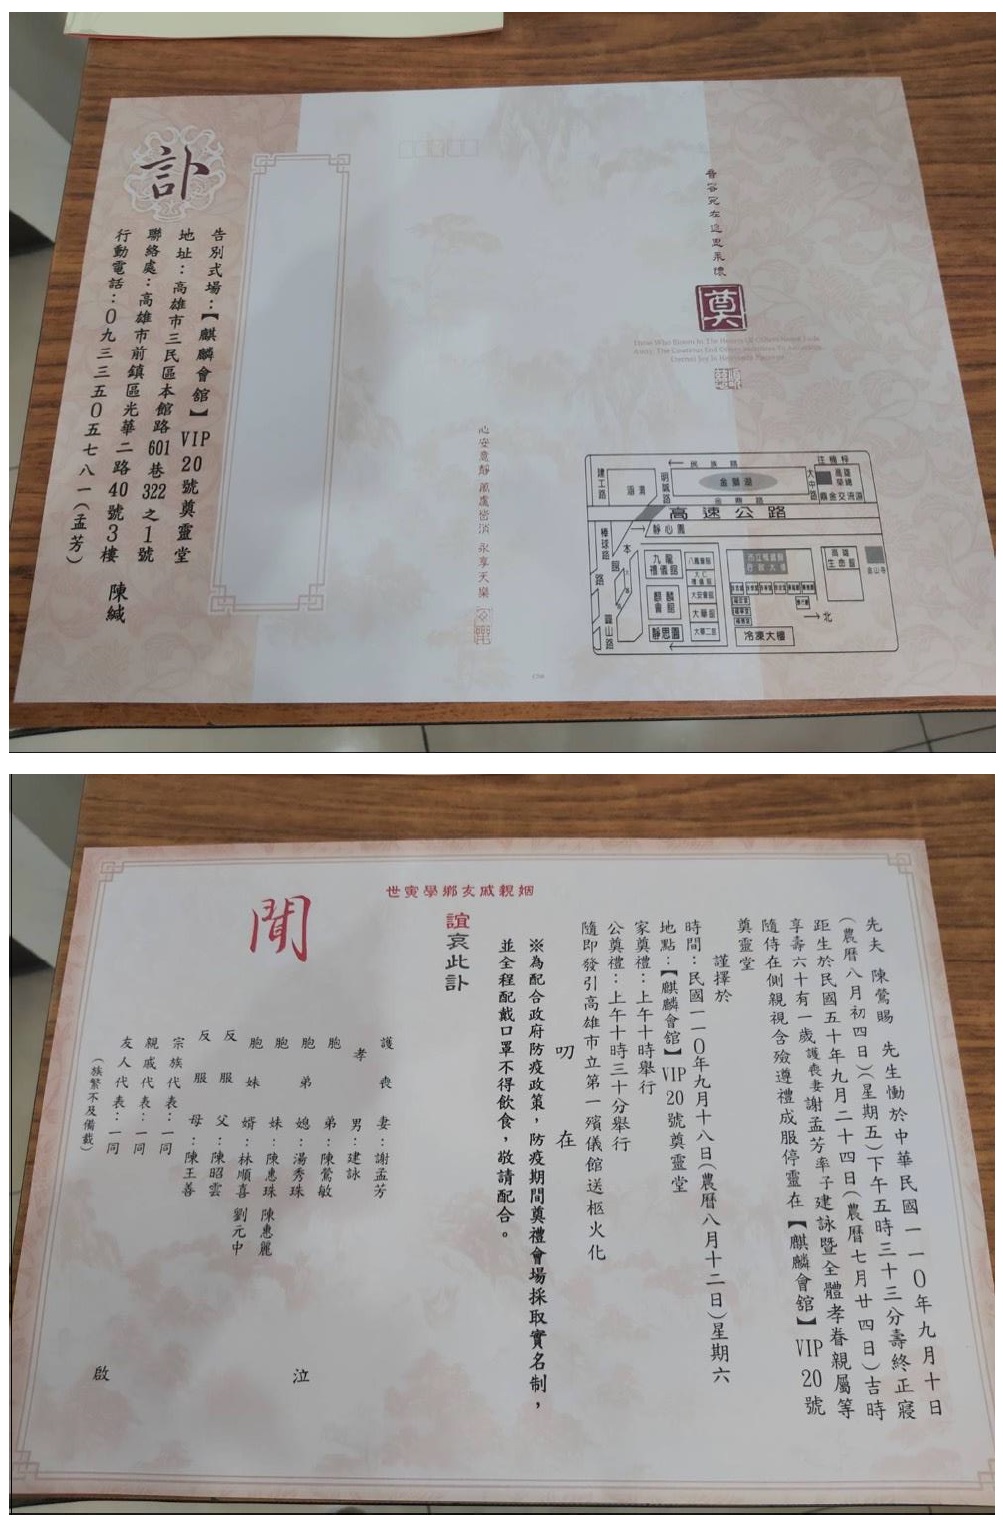 訃
告別式場：【麒麟會館】VIP 20號奠靈堂
地址：高雄市三民區本館路601巷322之1號
聯絡處：高雄市前鎮區光華二路40號3樓 陳緘
行動電話：0九三三五0五七八一(孟芳)
音容宛在這思永懷
奠
心安意靜 萬慮皆消 永享天樂
民族路
往楠梓
建工路
明誠路
金獅湖
大中路
鼎金交流道
金鼎路
高速公路
靜心園
棒球路
本館路
九龍禮儀館
大仁禮儀館
麒麟會館
大安會館
大華館
靜思園
大華二館
冷凍大樓
高雄生命館
金山寺
圓山路
北
先夫 陳鶯賜 先生慟於中華民國一一0年九月十日
(農曆八月初四日)(星期五)下午五時三十三分壽終正寢
距生於民國五十年九月二十四日(農曆七月廿四日)吉時
享壽六十有一歲護喪妻謝孟芳率子建詠暨全體孝眷親屬等
隨侍在側親視含殮遵禮成服停靈在【麒麟會館】VIP 20號
奠靈堂
謹擇於
時間：民國一一0年九月十八日(農曆八月十二日)星期六
地點：【麒麟會館】VIP 20號奠靈堂
家奠禮：上午十時舉行
公奠禮：上午十時三十分舉行
隨即發引高雄市立第一殯儀館送柩火化
叨在
※為配合政府防疫政策，防疫期間奠禮會場採取實名制，
並全程配戴口罩不得飲食，敬請配合。
世寅學鄉友戚親姻
誼哀此訃
聞
護喪妻：謝孟芳
孝男：建詠
胞弟：陳鶯敏
胞弟媳：湯秀珠
胞妹：陳惠珠 陳惠麗
胞妹婿：林順喜 劉元中
反服父：陳昭雲
反服母：陳王善
宗族代表：一同
親戚代表：一同
友人代表：一同
(族繁不及備載)
泣
啟